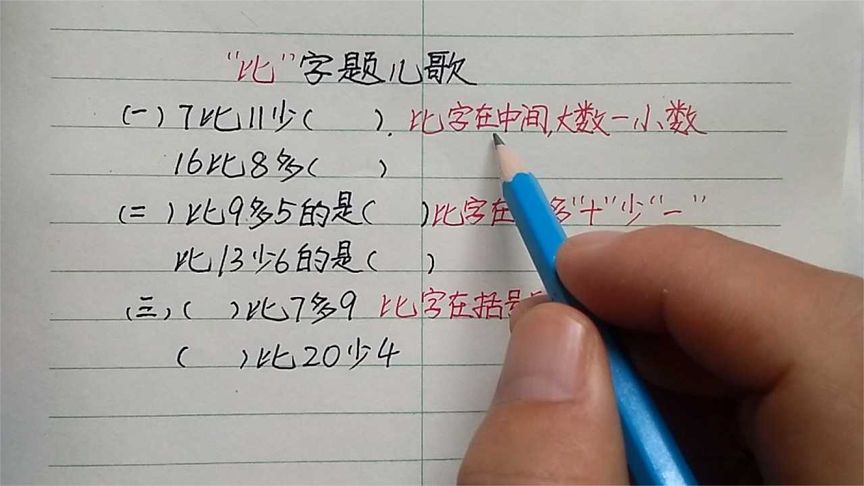 “比”字题儿歌
(一)7比11少(    ). 比字在中间,大数-小数
16比8多(    )
(二)比9多5的是(    )比字在 多“+”少“-”
比13少6的是(    )
(三)(    )比7多9 比字在括号
(    )比20少4